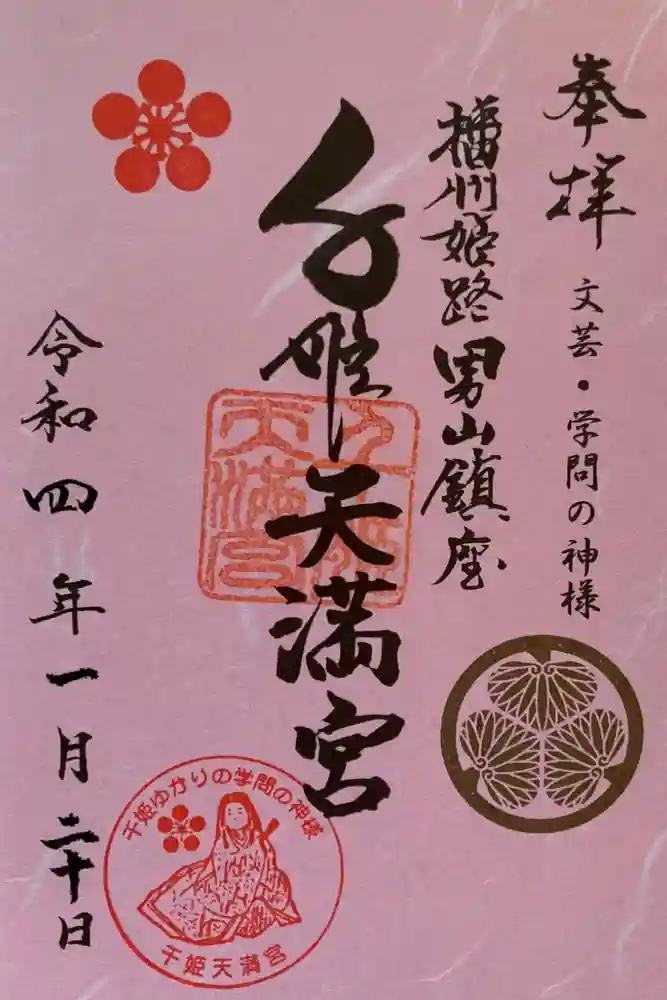 奉拝
文芸・学問の神様
播州姫路男山鎮座
千姫天満宮
千姫天満宮
令和四年一月二十日
千姫ゆかりの学問の神様
千姫天満宮